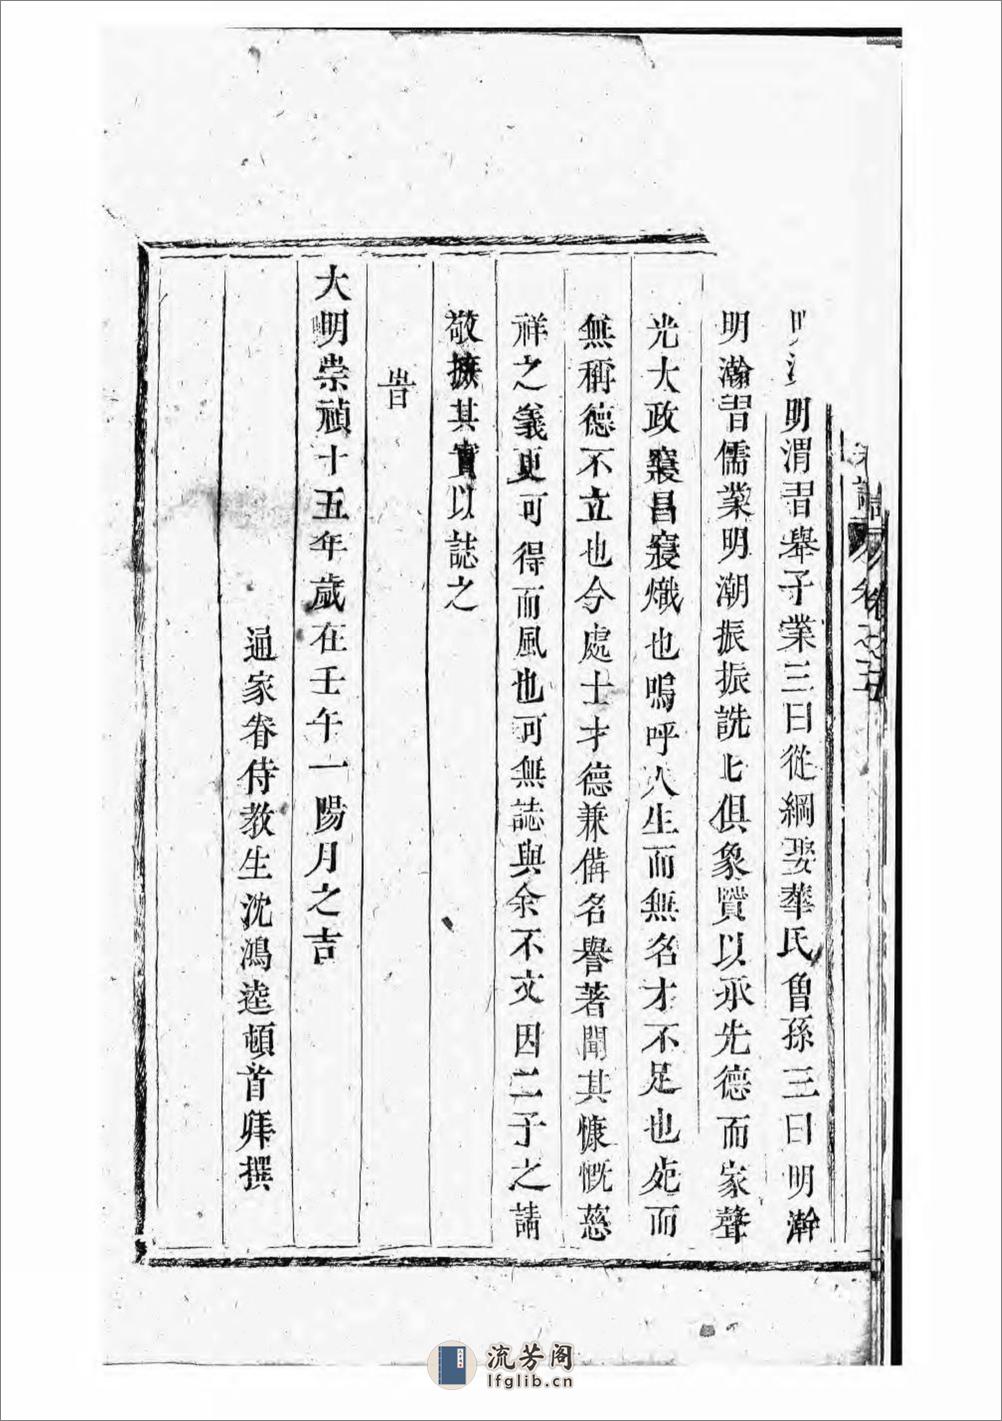 明渭習舉子業三曰從綱娶華氏曾孫三曰明瀚
明瀚習儒業明潮振振詵匕俱象賢以承先德而家聲
光大政寢昌寢熾也嗚呼人生而無名才不足也死而
無稱德不立也今處士才德兼俻名譽著聞其慷慨慈
祥之義更可得而風也可無誌與余不文因二子之請
敬摭其實以誌之
旹
大明崇禎十五年歲在壬午一陽月之吉
通家眷侍教生沈鴻逵頓首拜撰
流芳阁
lfglib.cn